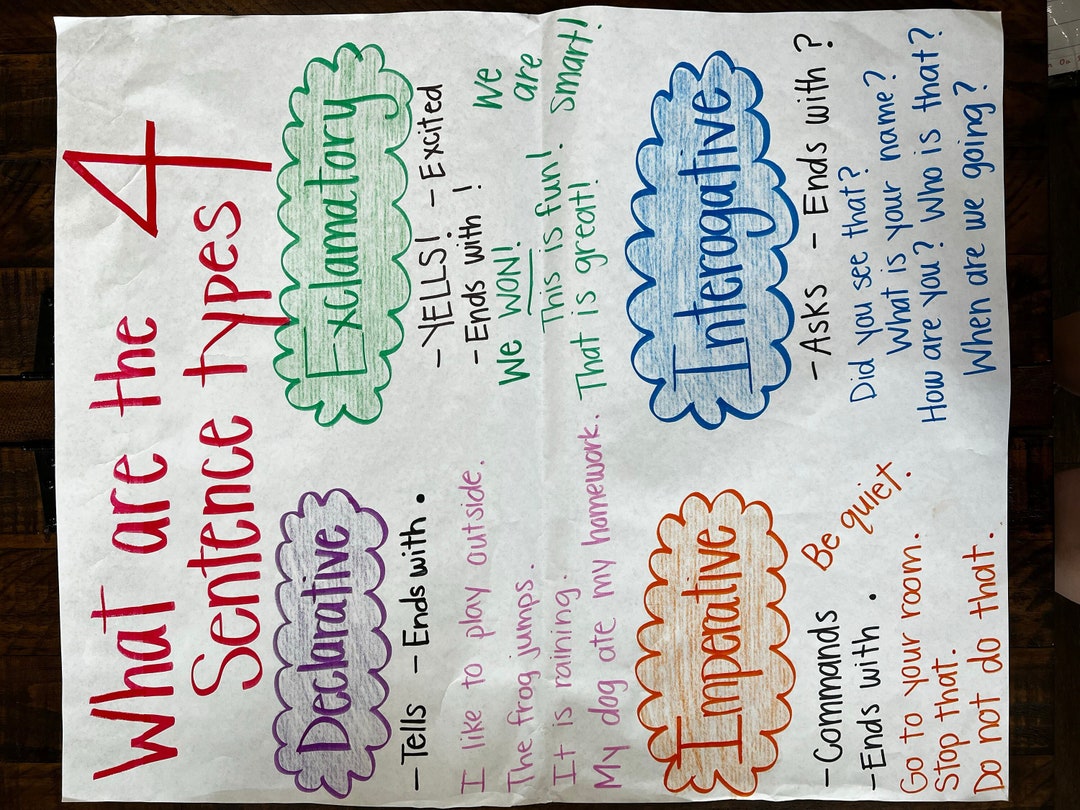 What are the 4
Sentence types
Declarative
-Tells -Ends with .
I like to play outside.
The frog jumps.
It is raining.
My dog ate my homework.
Exclamatory
-YELLS! -Excited
-Ends with !
We WON!
We are smart!
This is fun!
That is great!
Imperative
-Commands
-Ends with .
Be quiet.
Go to your room.
Stop that.
Do not do that.
Interogative
-Asks -Ends with ?
Did you see that?
What is your name?
How are you? Who is that?
When are we going?